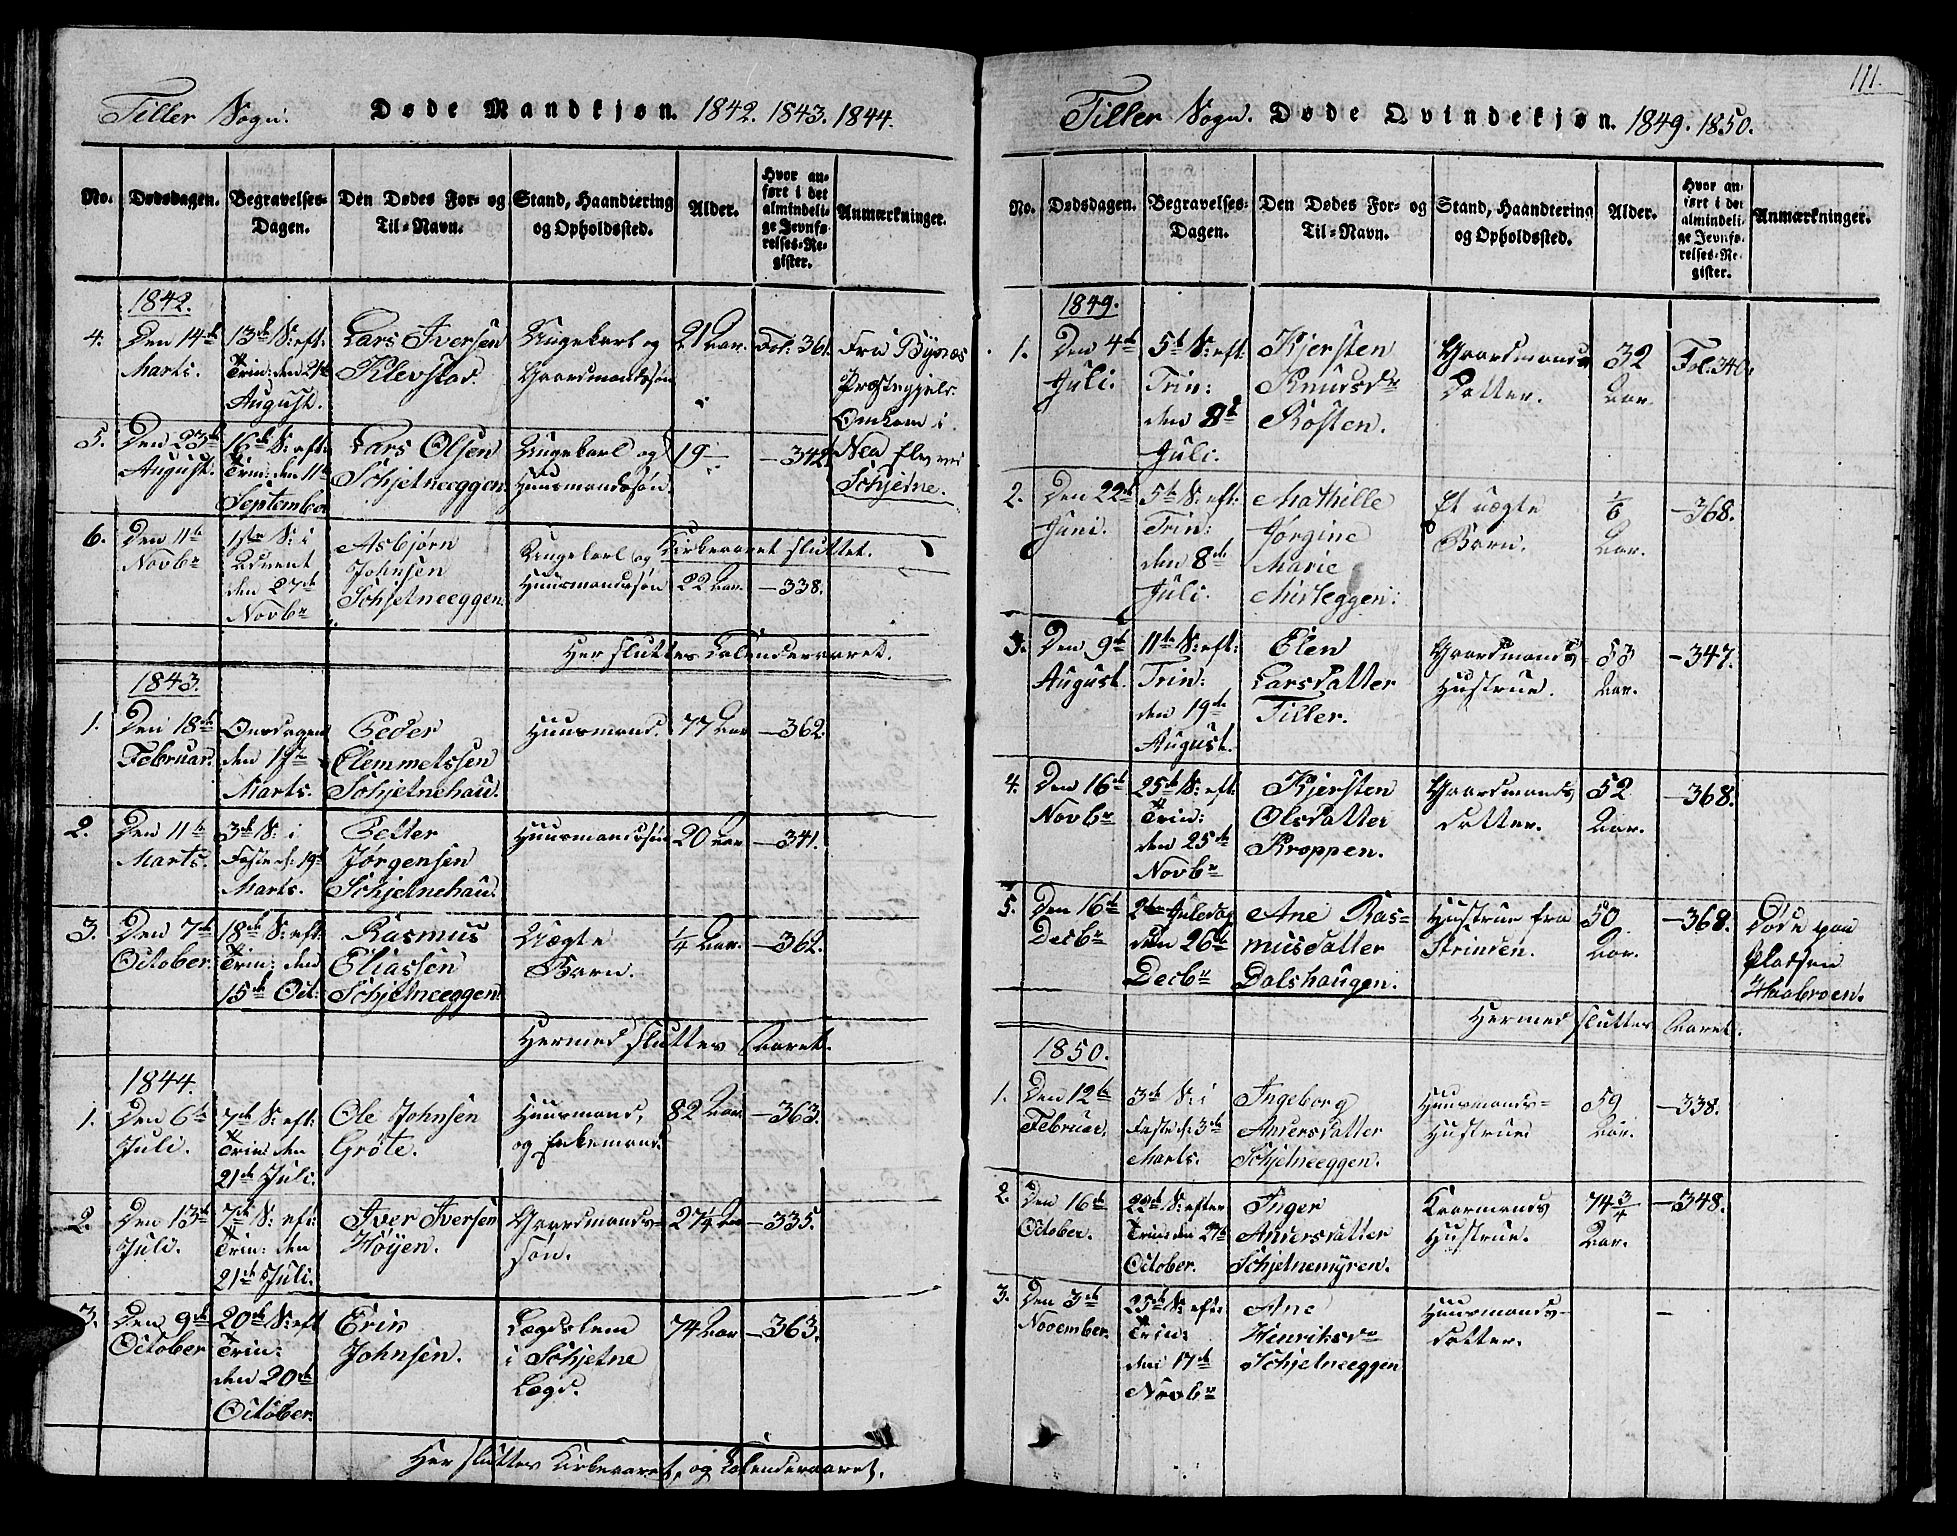 Tiller Sogn. Døde Mandkjøn. 1842. 1843. 1844.
No. Dødsdagen. Begravelses-Dagen. Den Dødes For- og Til-Navn. Stand, Haandtering og Opholdssted. Alder. Hvor anført i det almindelige Jevnførelses-Register. Anmærkninger.
1842.
4. Den 14de Marts. 13de S: eft: Trin: den 21de August. Lars Iversen Klevstad. Ungekarl og Gaardmandssøn 21 Aar. Fol: 361. Fra Bynæs Præstegjeld. Omkom i Nea Elv ved Schjetne.
5. Den 23de August. 16de S: eft: Trin: den 11te September Lars Olsen Schjetneeggen. Ungekarl og Huusmandssøn. 19 — — 342.
Kirkeaaret sluttet.
6. Den 11te Novbr 1ste S: i Advent den 27de Novbr Asbjørn Johnsen Schjetneeggen. Ungekarl og Huusmandssøn 22 Aar. — 338.
Her sluttes Kalenderaaret.
1843.
1. Den 18de Februar. Onsdagen den 1ste Marts. Peder Clemmetssen Schjetnehau. Huusmand. 77 Aar — 362.
2. Den 11te Marts. 3de S: i Faste d: 19de Marts. Petter Jørgensen Schjetnehau. Huusmandssøn 20 Aar — 341.
3. Den 7de October. 18de S: eft: Trin: den 15de Oct: Rasmus Eliassen Schjetneeggen. Uægte Barn. 1/4 Aar. — 362.
Hermed sluttes Aaret.
1844.
1. Den 6te Juli. 7de S: eft: Trin: den 21de Juli. Ole Johnsen Grøte. Huusmand, og Enkemand. 82 Aar — 363.
2. Den 13de Juli. 7de S: eft: Trin: den 21de Juli. Iver Iversen Høyen. Gaardmands-søn. 27 1/4 Aar — 335.
3. Den 9de October 20de S: eft Trin: den 20de October. Erik Johnsen. Lægdslem i Schjetne Lægd. 74 Aar — 363.
Her sluttes Kirkeaaret, og Kalenderaaret.
111.
Tiller Sogn. Døde Qvindekjøn. 1849. 1850.
No. Dødsdagen. Begravelses-Dagen. Den Dødes For- og Til-Navn. Stand, Haandtering og Opholdssted. Alder. Hvor anført i det almindelige Jevnførelses-Register. Anmærkninger.
1849.
1. Den 4de Juli. 5te S: eft: Trin: den 8de Juli. Kjersten Knudsdr Rosten. Gaardmands Datter. 32 Aar. Fol. 340.
2. Den 22de Juni. 5te S: eft: Trin: den 8de Juli. Mathille Jørgine Marie Mirleggen. Et uægte Barn. 1/6 Aar. — 368.
3. Den 9de August. 11te S: eft: Trin: den 19de August. Elen Larsdatter Tiller. Gaardmands Hustrue. 53 Aar. — 347.
4. Den 16de Novbr 25de S: eft. Trin: den 25de Novbr Kjersten Olsdatter Kroppen. Gaardmands datter. 52 Aar. — 368.
5. Den 16de Decbr 2den Juledag den 26de Decbr Ane Rasmusdatter Dalshaugen. Hustrue fra Strinden. 50 Aar. — 368. Døde paa Pladsen Haabroen.
Hermed sluttes Aaret.
1850.
1. Den 12te Februar. 3de S: i Faste d: 3de Marts. Ingeborg Andersdatter Schjetneeggen. Huusmands-Hustrue 59 Aar. — 338.
2. Den 16de October. 22de S: efter Trin: den 27de October. Inger Andersdatter Schjetnemyren. Kaarmands Hustrue. 74 3/4 Aar. — 348.
3. Den 3de November. 25de S: eft: Trin: den 17de Novbr Ane Henriksdr Schjetneeggen Huusmands-datter. —